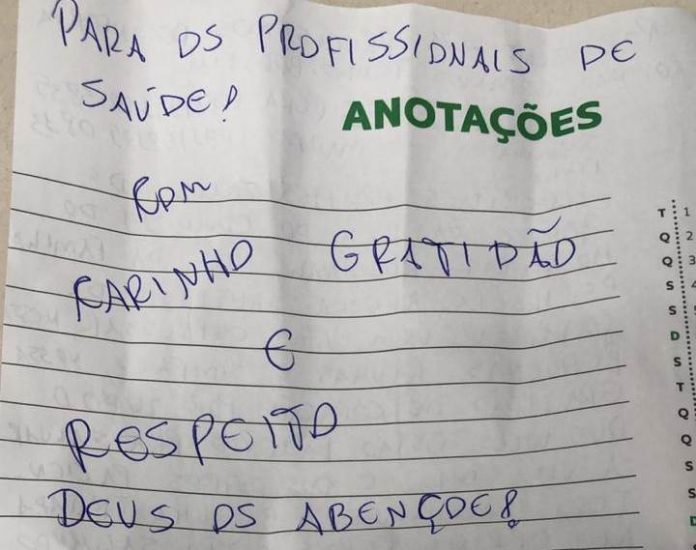 PARA OS PROFISSIONAIS DE
SAÚDE!
ANOTAÇÕES
COM
CARINHO GRATIDÃO
E
RESPEITO
DEUS OS ABENÇOE!
T 1
Q 2
Q 3
S 4
S
D
S
T
Q
Q
S
S
D